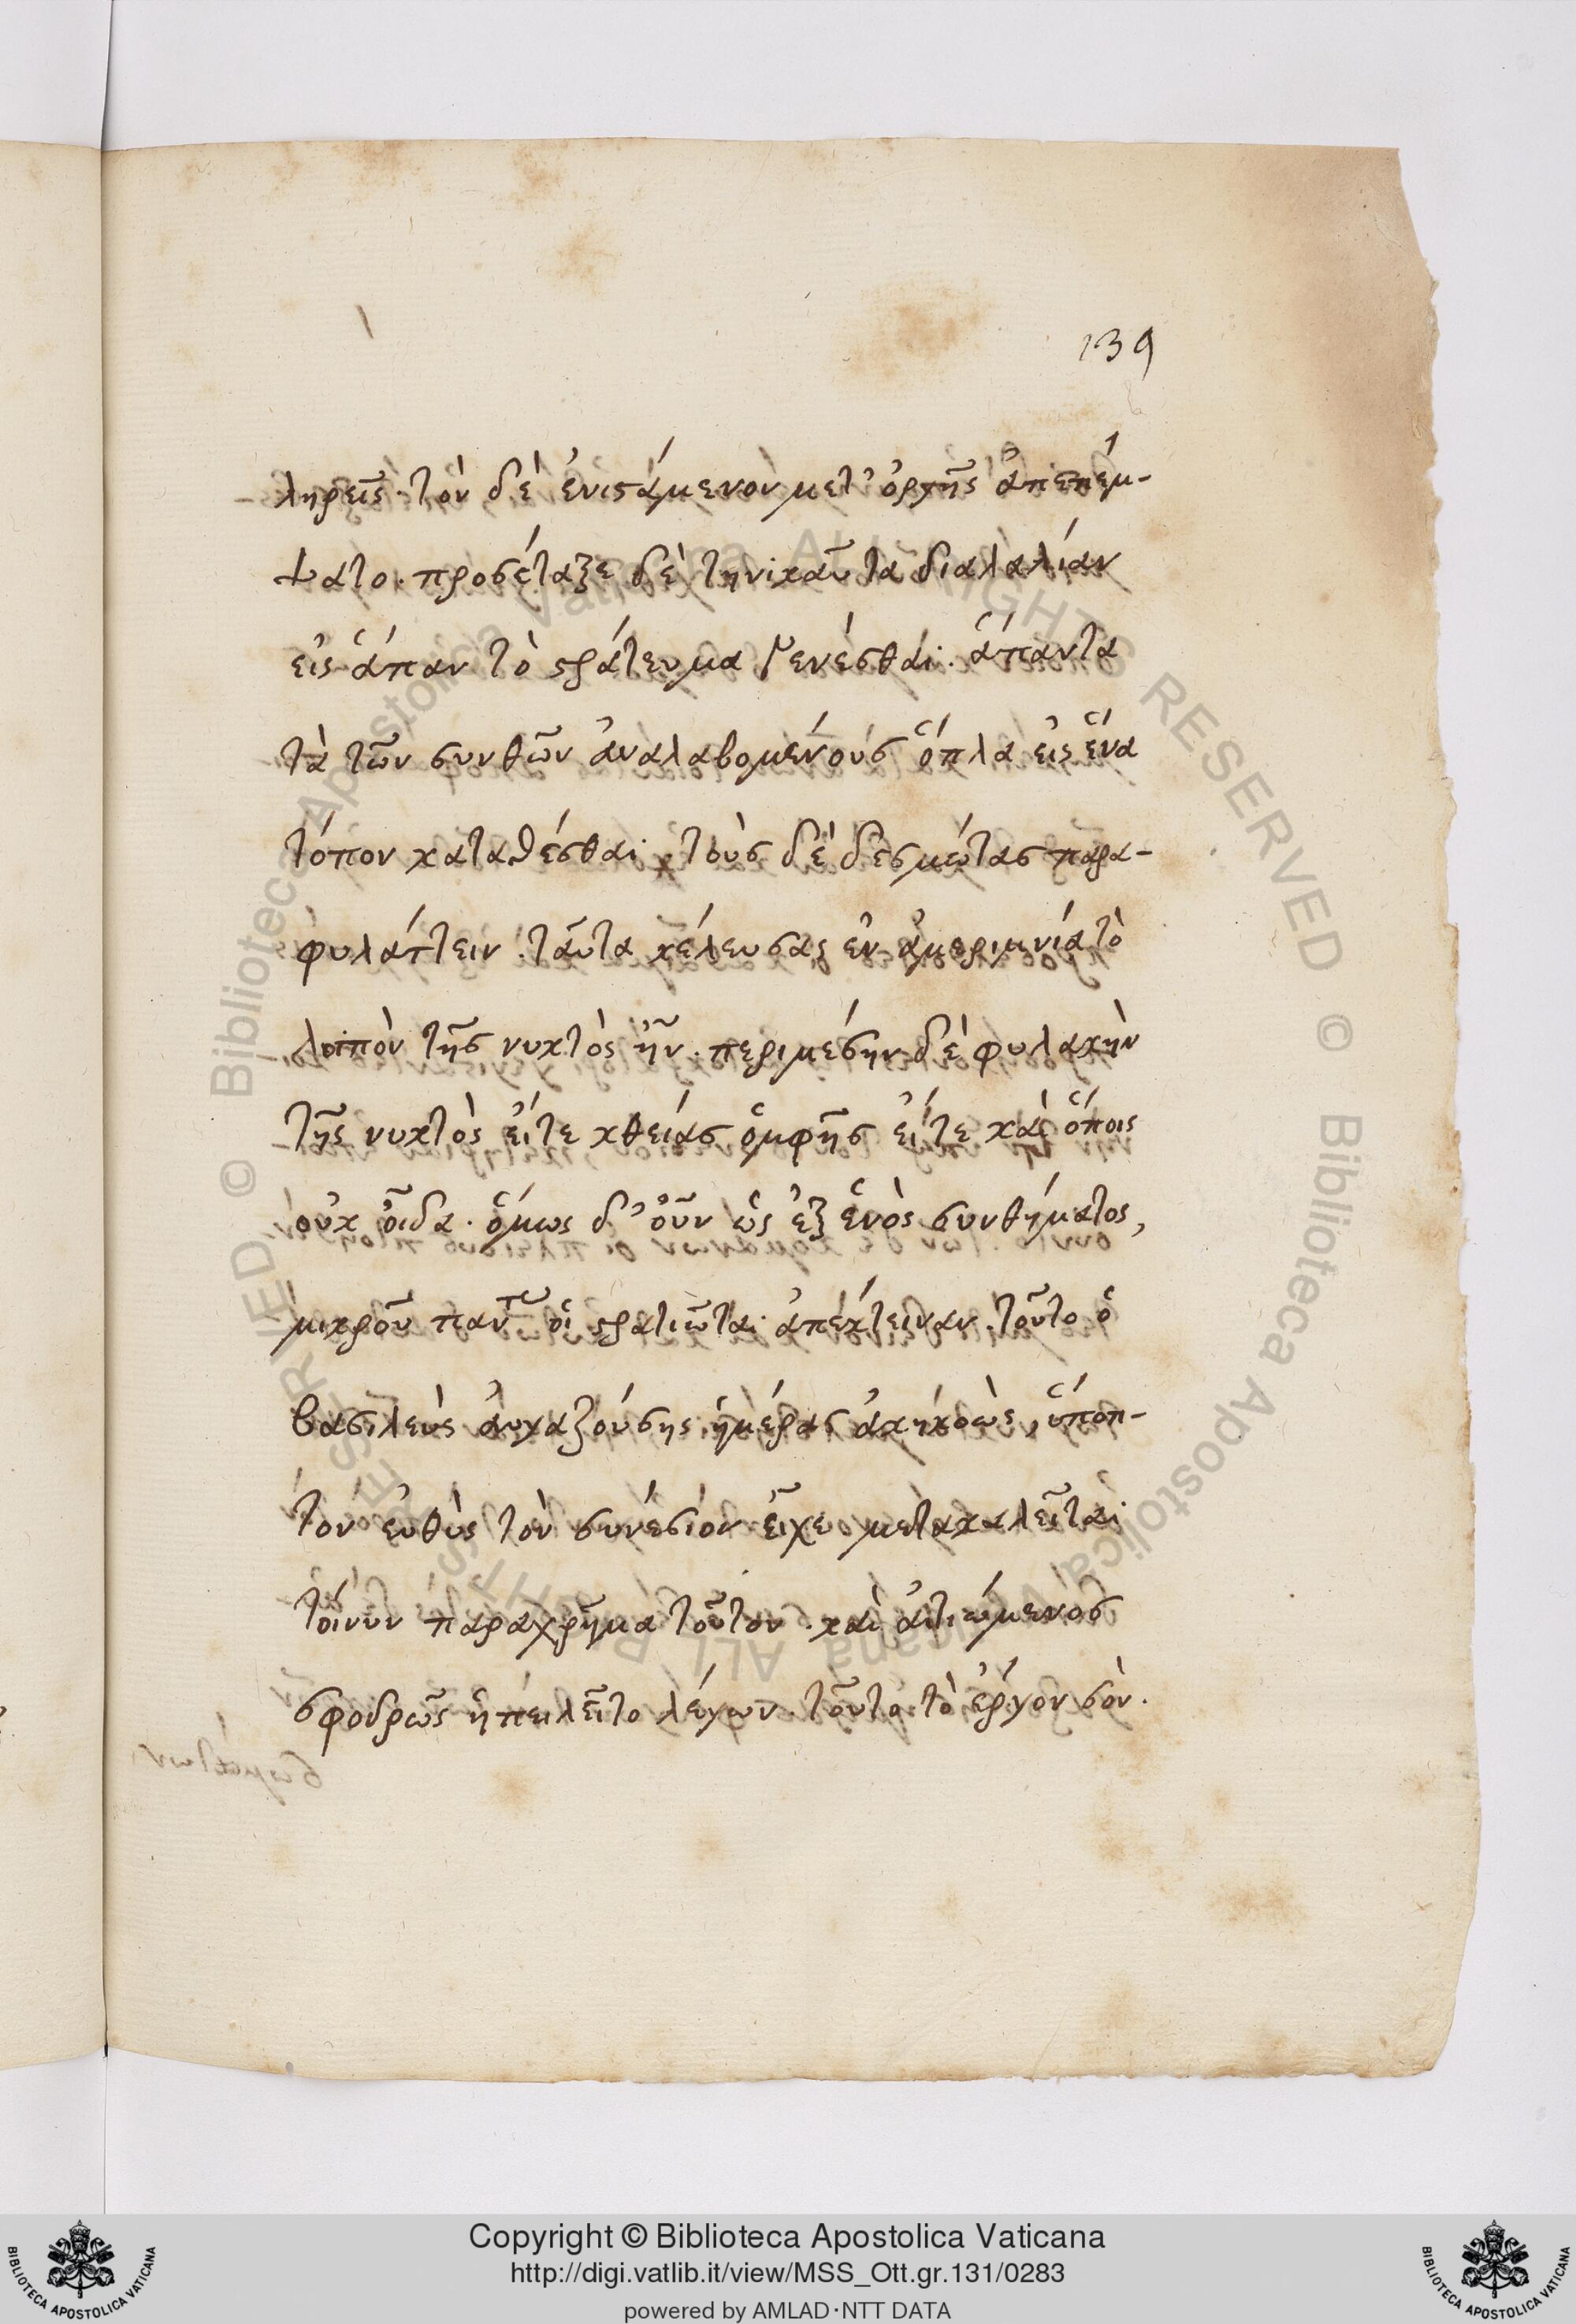 139
ληρεῖς. τὸν δὲ ἐνιστάμενον μετ' ὀργῆς ἀπεπέμ-
ψατο. προσέταξε δὲ τηνικαῦτα διαλαλίαν
εἰς ἅπαν τὸ στράτευμα γενέσθαι. ἅπαντα
τὰ τῶν σκυθῶν ἀναλαβομένους ὅπλα εἰς ἕνα
τόπον καταθέσθαι. τοὺς δὲ δεσμώτας παρα-
φυλάττειν. ταῦτα κέλευσας ἐν ἀμεριμνία τὸ
λοιπὸν τῆς νυκτὸς ἦν. περιμέσην δὲ φυλακὴν
τῆς νυκτὸς εἴτε κθείας ὀμφῆς εἴτε καὶ ὅποις
οὐκ οἶδα. ὅμως δ' οὖν ὡς ἐξ ἑνὸς συνθήματος,
μικροῦ παντω οἱ στρατιῶται ἀπέκτειναν. τοῦτο ὁ
βασιλεὺς αὐγαζούσης ἡμέρας ἀκηκοὼς, ὕποπ-
τον εὐθὺς τὸν συνέσιον εἶχε. μετακαλεῖται
τοίνυν παραχρῆμα τοῦτον. καὶ αἰτιώμενος
σφοδρῶς ἠπειλεῖτο λέγων. τοῦτο τὸ ἔργον σὸν.
Copyright © Biblioteca Apostolica Vaticana
http://digi.vatlib.it/view/MSS_Ott.gr.131/0283
powered by AMLAD·NTT DATA
BIBLIOTECA APOSTOLICA VATICANA
BIBLIOTECA APOSTOLICA VATICANA